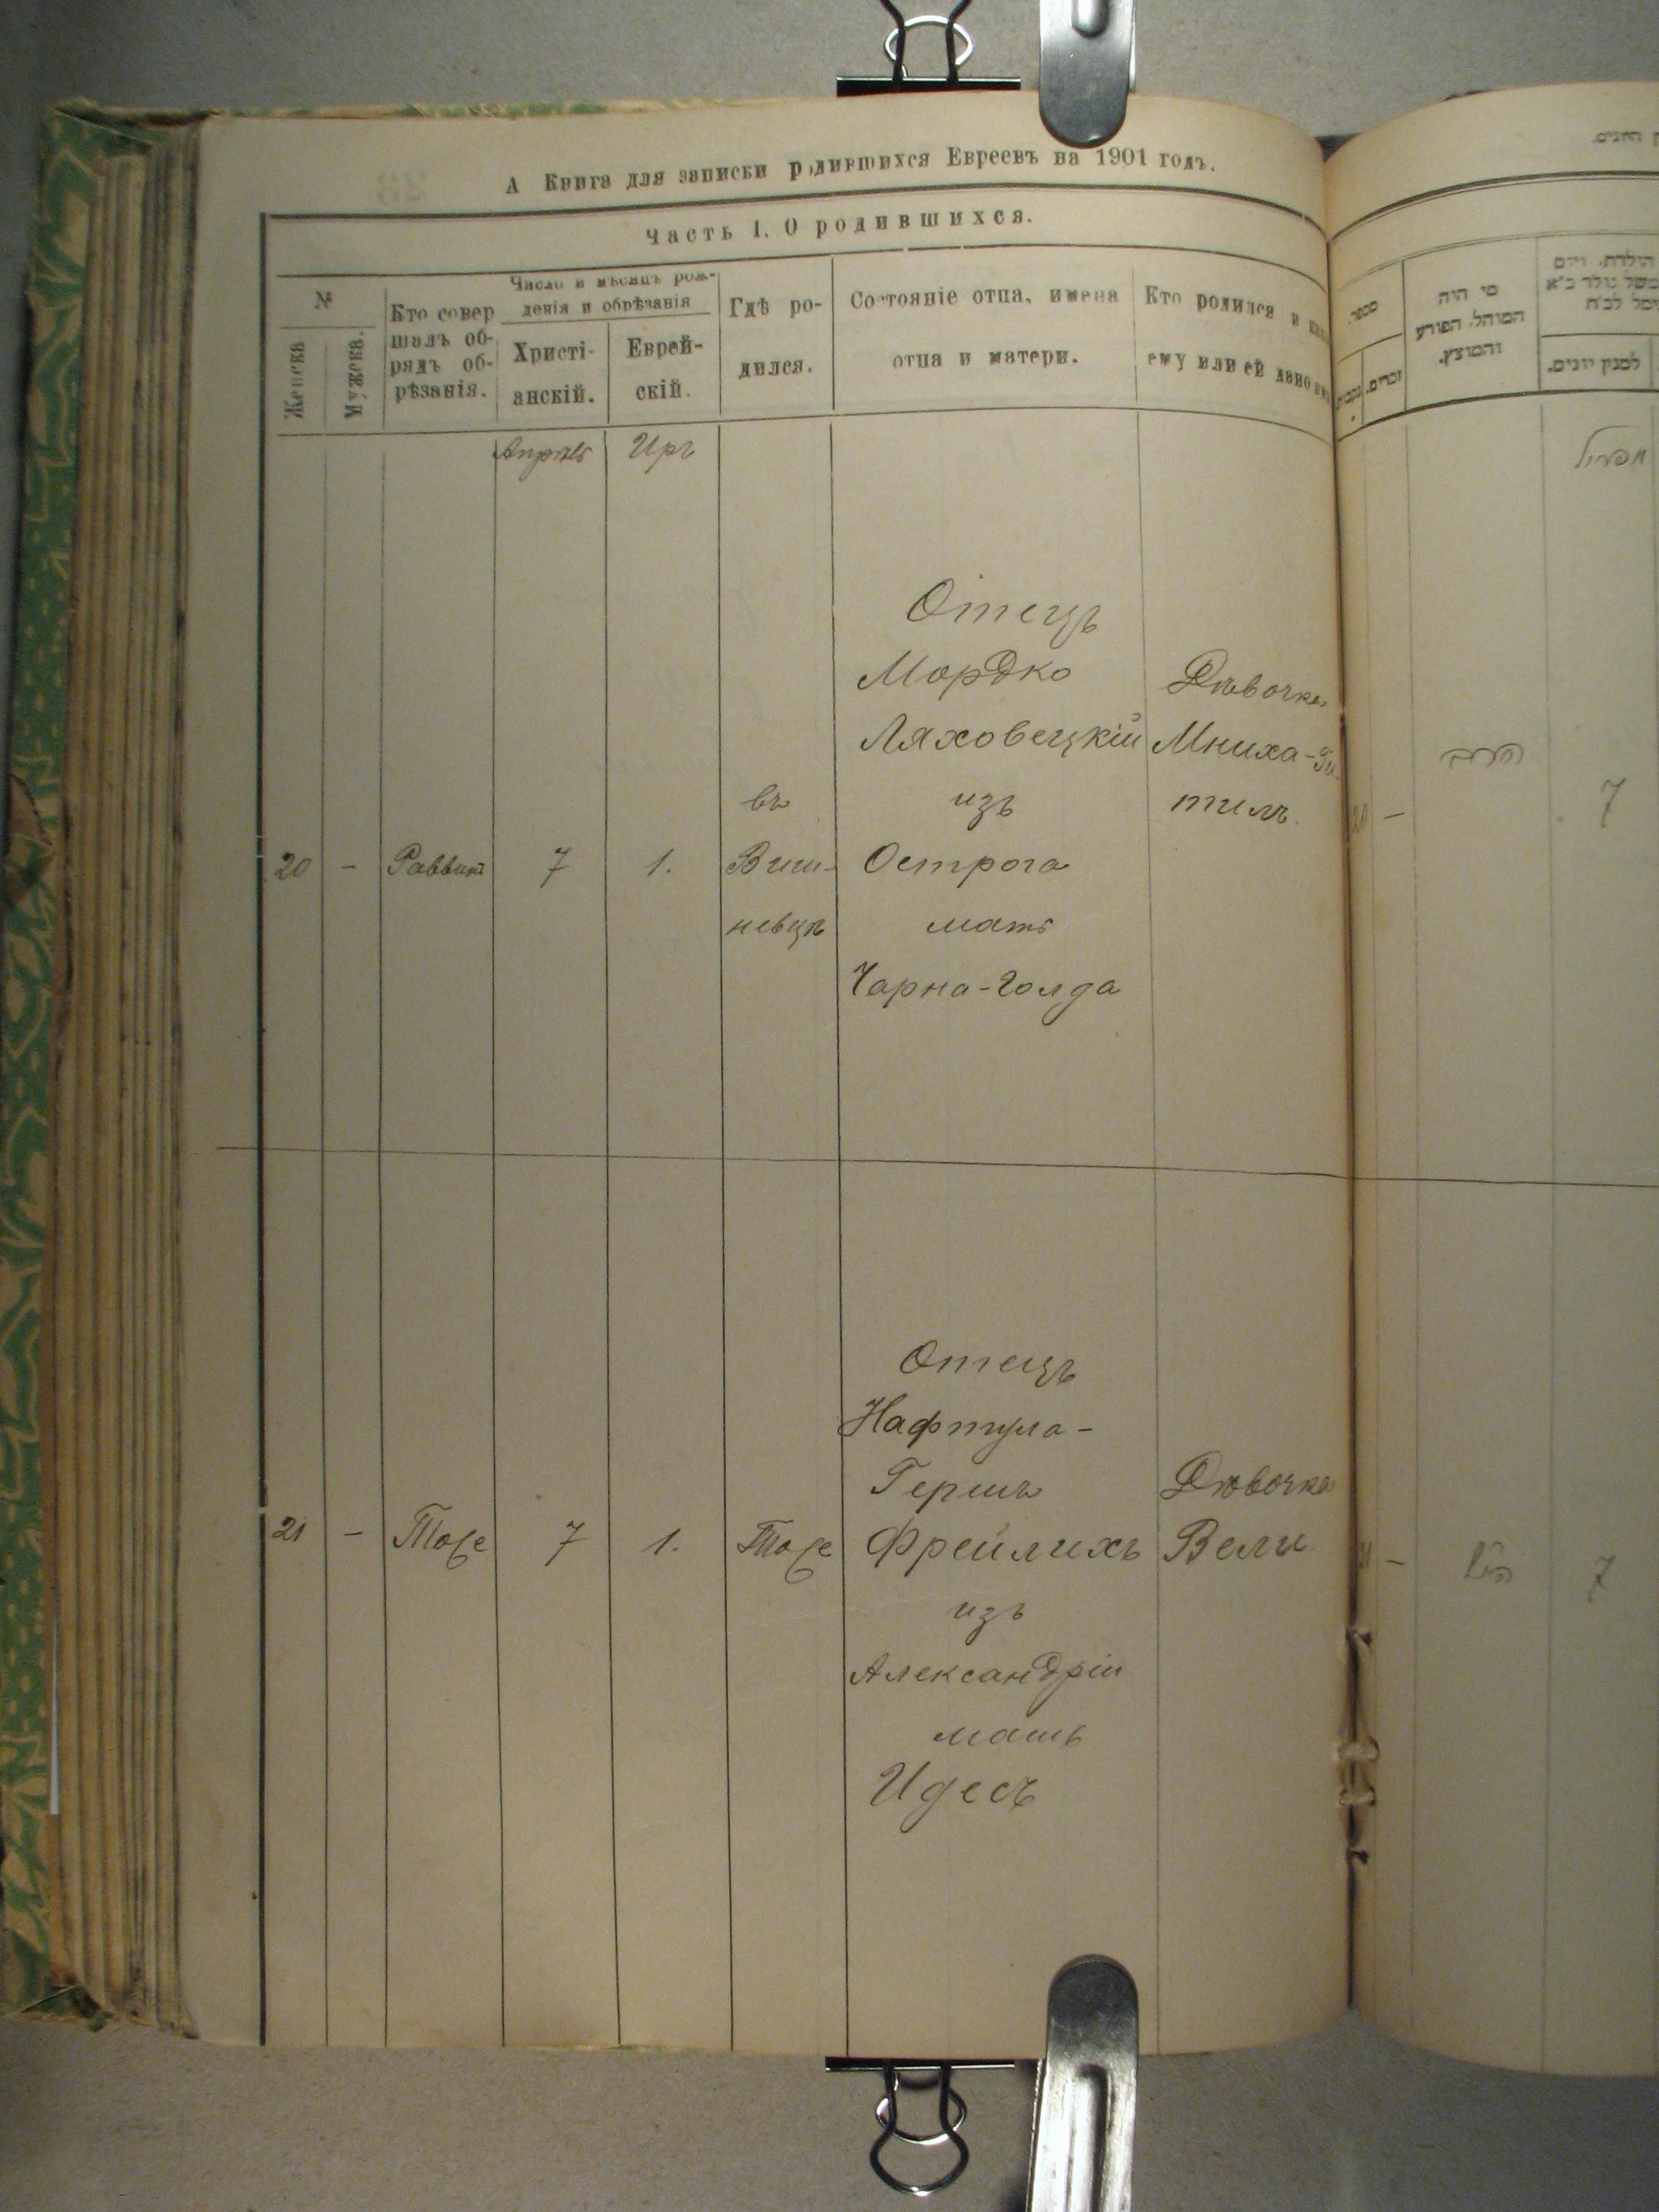 А Книга для записки родившихся Евреевъ на 1901 годъ.
Часть I. О родившихся.
№
Женска
Мужска.
Кто совер
шалъ об-
рядъ об-
рѣзанія.
Число и мѣсяцъ рож-
денія и обрѣзанія
Христі-
анскій.
Еврей-
скій.
Гдѣ ро-
дился.
Состояніе отца, имена
отца и матери.
Кто родился и
ему или ей дано
Апрѣль
Иръ
20
-
Раввинъ
7
1.
въ
Виш-
невцѣ
Отецъ
Мордко
Ляховецкій
изъ
Острога
мать
Чарна-Голда
Дѣвочка
Мниха-Ги
тилъ.
21
-
Тоже
7
1.
Тоже
Отецъ
Нафтула-
Гершъ
Фрейлихъ
изъ
Александріи
мать
Идесъ
Дѣвочка
Вели
מספר.
זכרים.
מי היה
המוהל, הפורע
והמוצץ.
למנין יונים.
אפריל
-
הרב
7
-
7